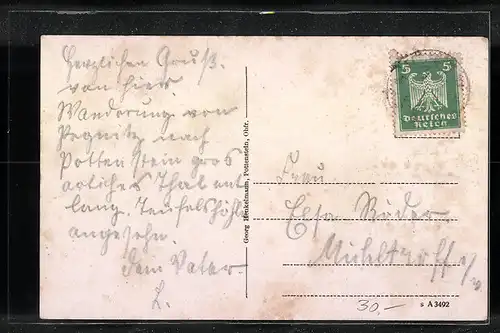 Herzlichen Gruß.
von hier.
Wanderung von
Pegnitz nach
Pottenstein gros
artiches Thal ent
lang. Teufelshöhle
angesehn.
Dein Vater
L.
Georg Henkelmann, Pottenstein, Obfr.
5 5
Deutsches
Reich
Frau
Elsa Röder
Mühltroff i/V.
s A 3492
30.-